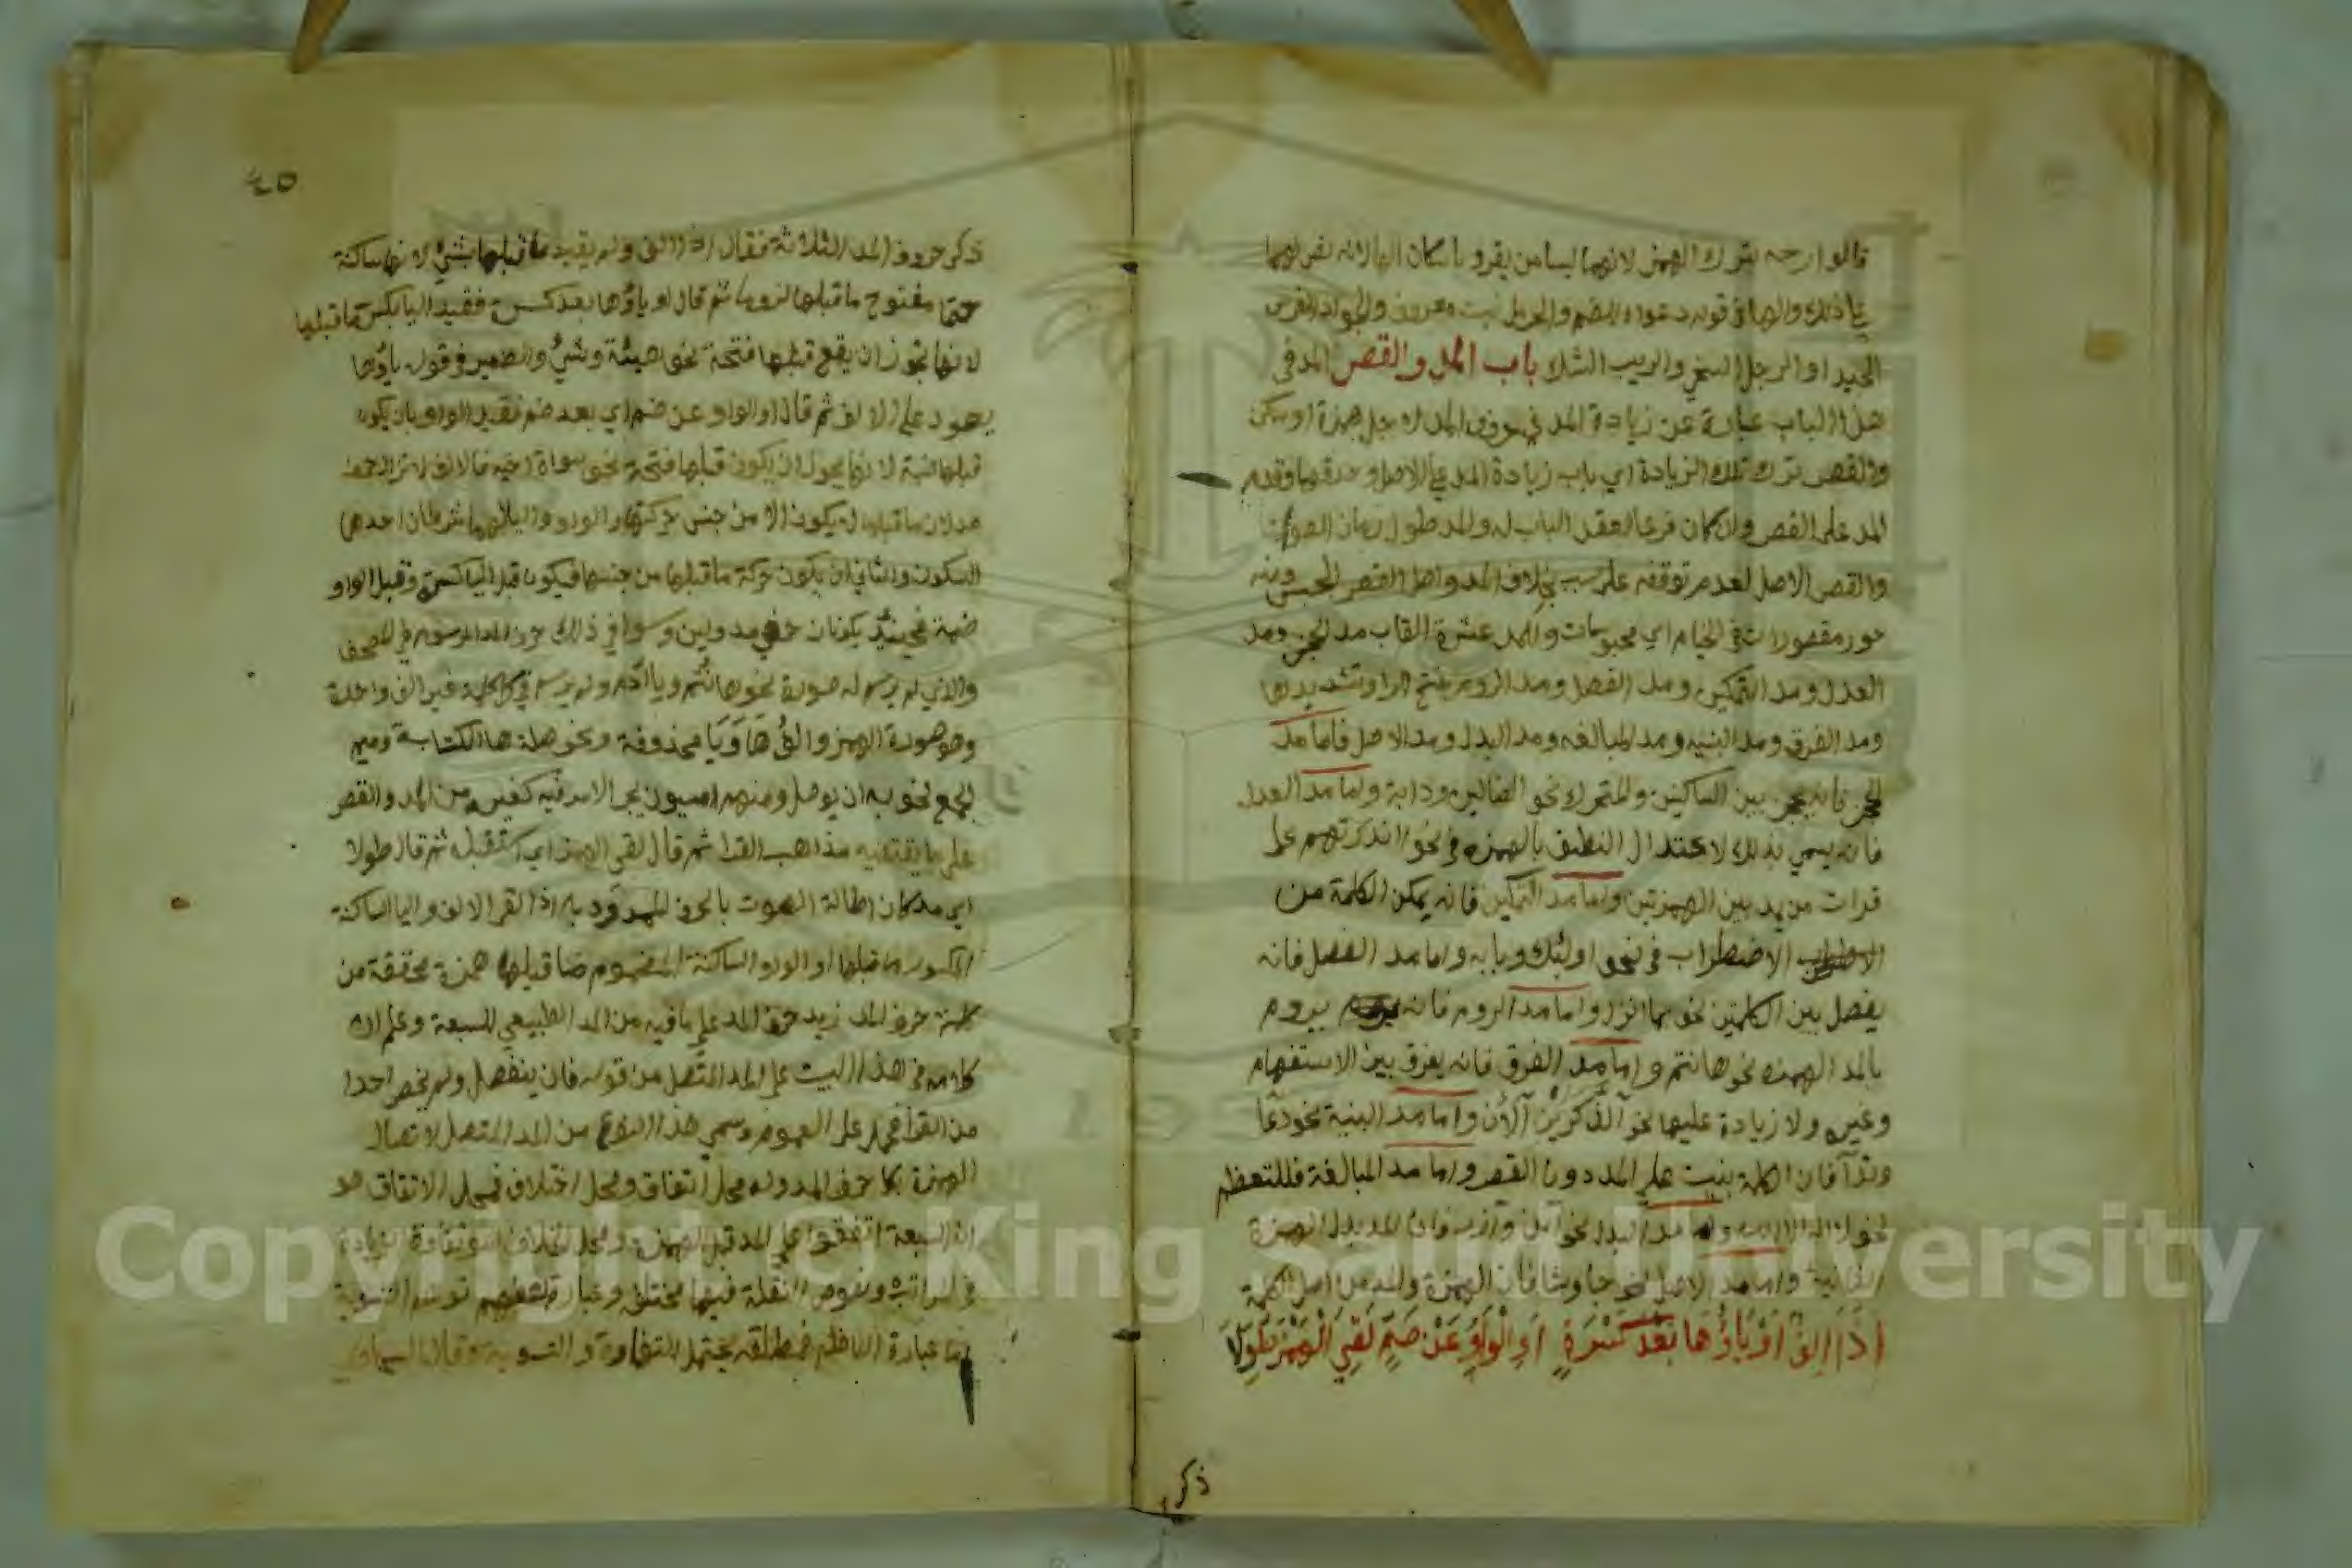 قالوا ارجه بترك الهمز لانهما ليسا من يقرو باسكان الها لانه نص لهما
في ذلك والها في قوله دعواه للضم والحرمل نبت معروف والجواد الفرس
الجيد او الرجل السخي والريب الشك باب المد والقصر المد في
هذا الباب عبارة عن زيادة المد في حروف المد لاجل همزة او سكن
والقصر ترك تلك الزيادة اي باب زيادة المد علي الاصل وحدفها وقدم
المد علي القصر وان كان فرعا لعقد الباب له والمد طول زمان الصوت
والقصر الاصل لعدم توقفه علي سبب بخلاف المد واصل القصر الحبس ومنه
حور مقصورات في الخيام اي محبوسات وللمد عشرة القاب مد الحجز ومد
العدل ومد التمكين ومد الفصل ومد الروم بفتح الرا وتشديدها
ومد الفرق ومد البنيه ومد المبالغه ومد البدل ومد الاصل فاما مد
الحجز فانه يحجز بين الساكنين والمتحرك نحو الضالين ودابة واما مد العدل
فانه يسمي بذلك لاعتدال النطق بالهمزه في نحو اانذرتهم علي
قراة من يمد بين الهمزتين واما مد التمكين فانه يمكن الكلمة من
الاضطراب في نحو اولئك وبابه واما مد الفصل فانه
يفصل بين الكلمتين نحو بما انزل واما مد الروم فانه يروم
بالمد الهمزه نحو هاانتم واما مد الفرق فانه يفرق بين الاستفهام
وغيره ولا زيادة عليها نحو آلذكرين آلآن واما مد البنية نحو دعا
وندآ فان الكلمة بنيت علي المد دون القصر واما مد المبالغة فللتعظم
نحو لا اله الا الله واما مد البدل نحو آمن وآزر فان المد بدل الهمزة
الثانية واما مد الاصل نحو جا وشا فان الهمزة والمد من اصل الكلمة
اذا الف او ياؤها بعد كسرة او الواو عن ضم لقي الهمز طولا
ذكر
٤٥
ذكر حروف المد الثلاثة فقال اذا الف ولم يقيد ما قبلها بشئ لانها ساكنة
حتما مفتوح ما قبلها لزوما ثم قال او ياؤها بعد كسرة فقيد اليا بكسر ما قبلها
لانها يجوز ان يقع قبلها فتحة نحو هيئة وشئ والضمير في قوله ياؤها
يعود علي الالف ثم قال او الواو عن ضم اي بعد ضم فقيد الواو بان يكون
قبلها ضمة لانها يجوز ان يكون قبلها فتحة نحو سواة اخيه فالالف لا تزال حرف
مد لان ما قبلها لا يكون الا من جنس حركتها والواو واليا لهما شرطان احدهما
السكون والثاني ان يكون حركة ما قبلها من جنسها فيكون قبل اليا كسرة وقبل الواو
ضمة فحينئذ يكونان حرفي مد ولين وسوا في ذلك حرف المد المرسوم في المصحف
والذي لم يرسم له صورة نحو هاانتم ويا ادم ولم يرسم في كل كلمة غير الف واحدة
وهو صورة الهمز والف ها ويا محذوفة ونحو صلة ها الكناية وميم
الجمع نحو به ان يوصل ومنهم اميون يجرا الامر فيه كغيره من المد والقصر
علي ما يقتضيه مذاهب القرا ثم قال لقي الهمز اي استقبله ثم قال طولا
اي مد كان اطالة الصوت بالحرف الممدود به اذا لقي الالف واليا الساكنة
المكسور ما قبلها او الواو الساكنة المضموم ما قبلها همزة محققة من
كلمة حرف المد زيد حرف المد علي ما فيه من المد الطبيعي للسبعة وعلم ان
كلامه في هذا البيت علي المد المتصل من قوله فان ينفصل ولم يخص احدا
من القرا فحمل علي العموم وسمي هذا النوع من المد المتصل لاتصال
الهمزة بكلمة حرف المد وله محل اتفاق ومحل اختلاف فمحل الاتفاق هو
ان السبعة اتفقوا علي المد قبل الهمزة ومحل الخلاف هو تفاوة الزيادة
في المراتب ونصوص النقلة فيها مختلفة وعبارة بعضهم توهم التسوية
اما عبارة الناظم فمطلقة تحتمل للتفاوة والتسوية وقال السخاوي
Copyright © King Saud University